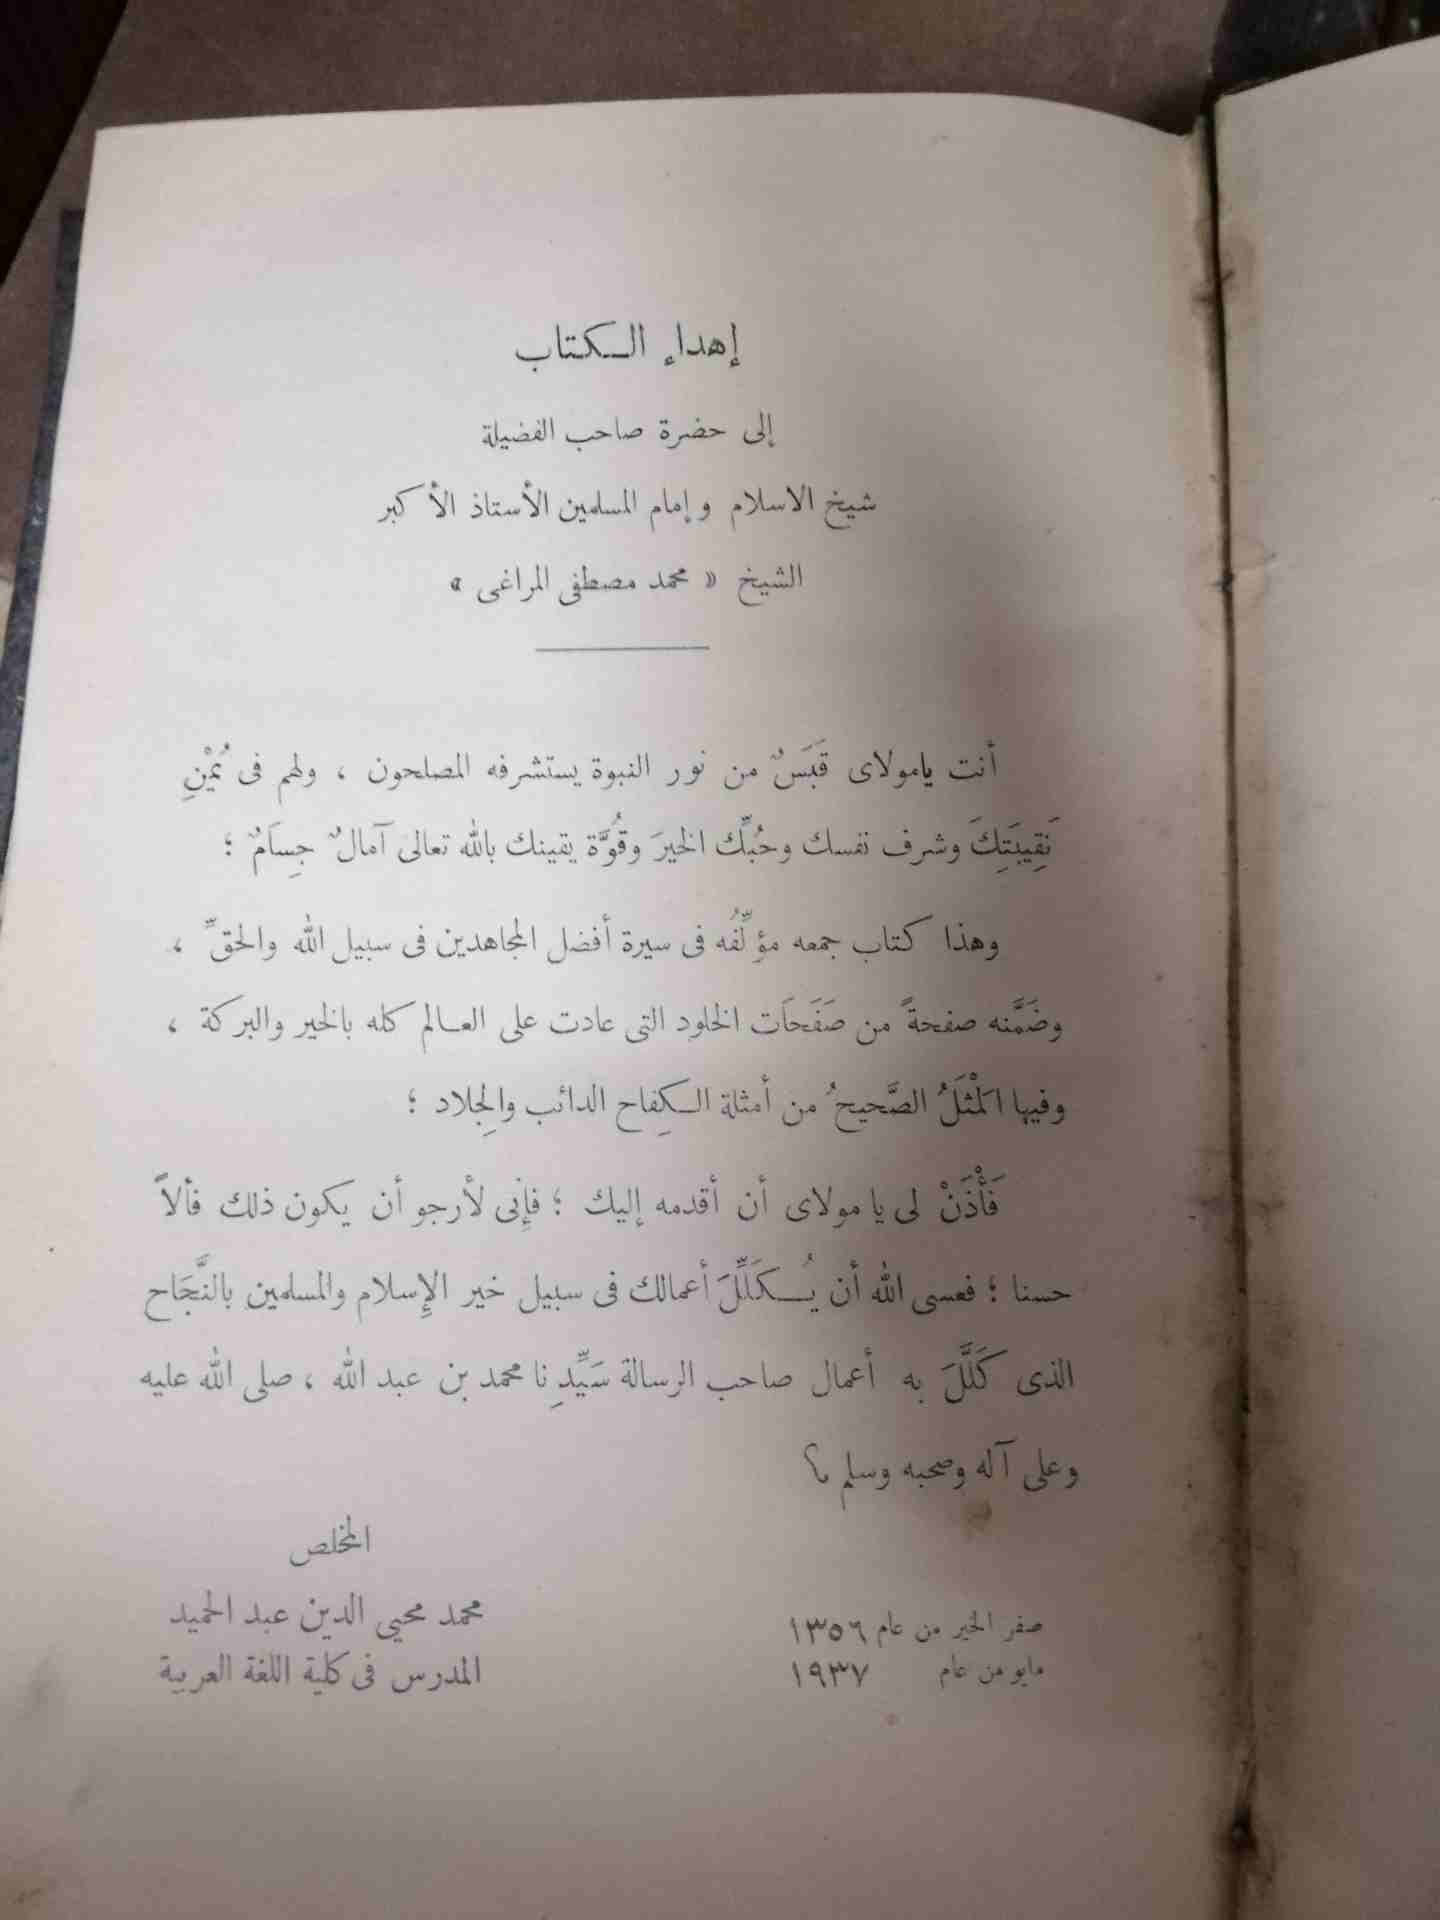 إهداء الكتاب
إلى حضرة صاحب الفضيلة
شيخ الاسلام وإمام المسلمين الأستاذ الأكبر
الشيخ « محمد مصطفى المراغى »
أنت يامولاى قَبَسٌ من نور النبوة يستشرفه المصلحون ، ولهم فى يُمْنِ
نَقِيبَتِكَ وشرف نفسك وحُبِّك الخيرَ وقُوَّة يقينك بالله تعالى آمالٌ جِسَامٌ ؛
وهذا كتاب جمعه مؤلِّفُه فى سيرة أفضل المجاهدين فى سبيل الله والحقِّ ،
وضَمَّنه صفحةً من صَفَحَات الخلود التى عادت على العالم كله بالخير والبركة ،
وفيها المَثَلُ الصَّحيحُ من أمثلة الكِفاح الدائب والجِلاد ؛
فَأْذَنْ لى يا مولاى أن أقدمه إليك ؛ فإنى لأرجو أن يكون ذلك فألاً
حسنا ؛ فعسى الله أن يُكَلِّلَ أعمالك فى سبيل خير الإسلام والمسلمين بالنَّجَاح
الذى كَلَّلَ به أعمال صاحب الرسالة سَيِّدِنا محمد بن عبد الله ، صلى الله عليه
وعلى آله وصحبه وسلم
المخلص
محمد محيى الدين عبد الحميد
المدرس فى كلية اللغة العربية
صفر الخير من عام ١٣٥٦
مايو من عام ١٩٣٧